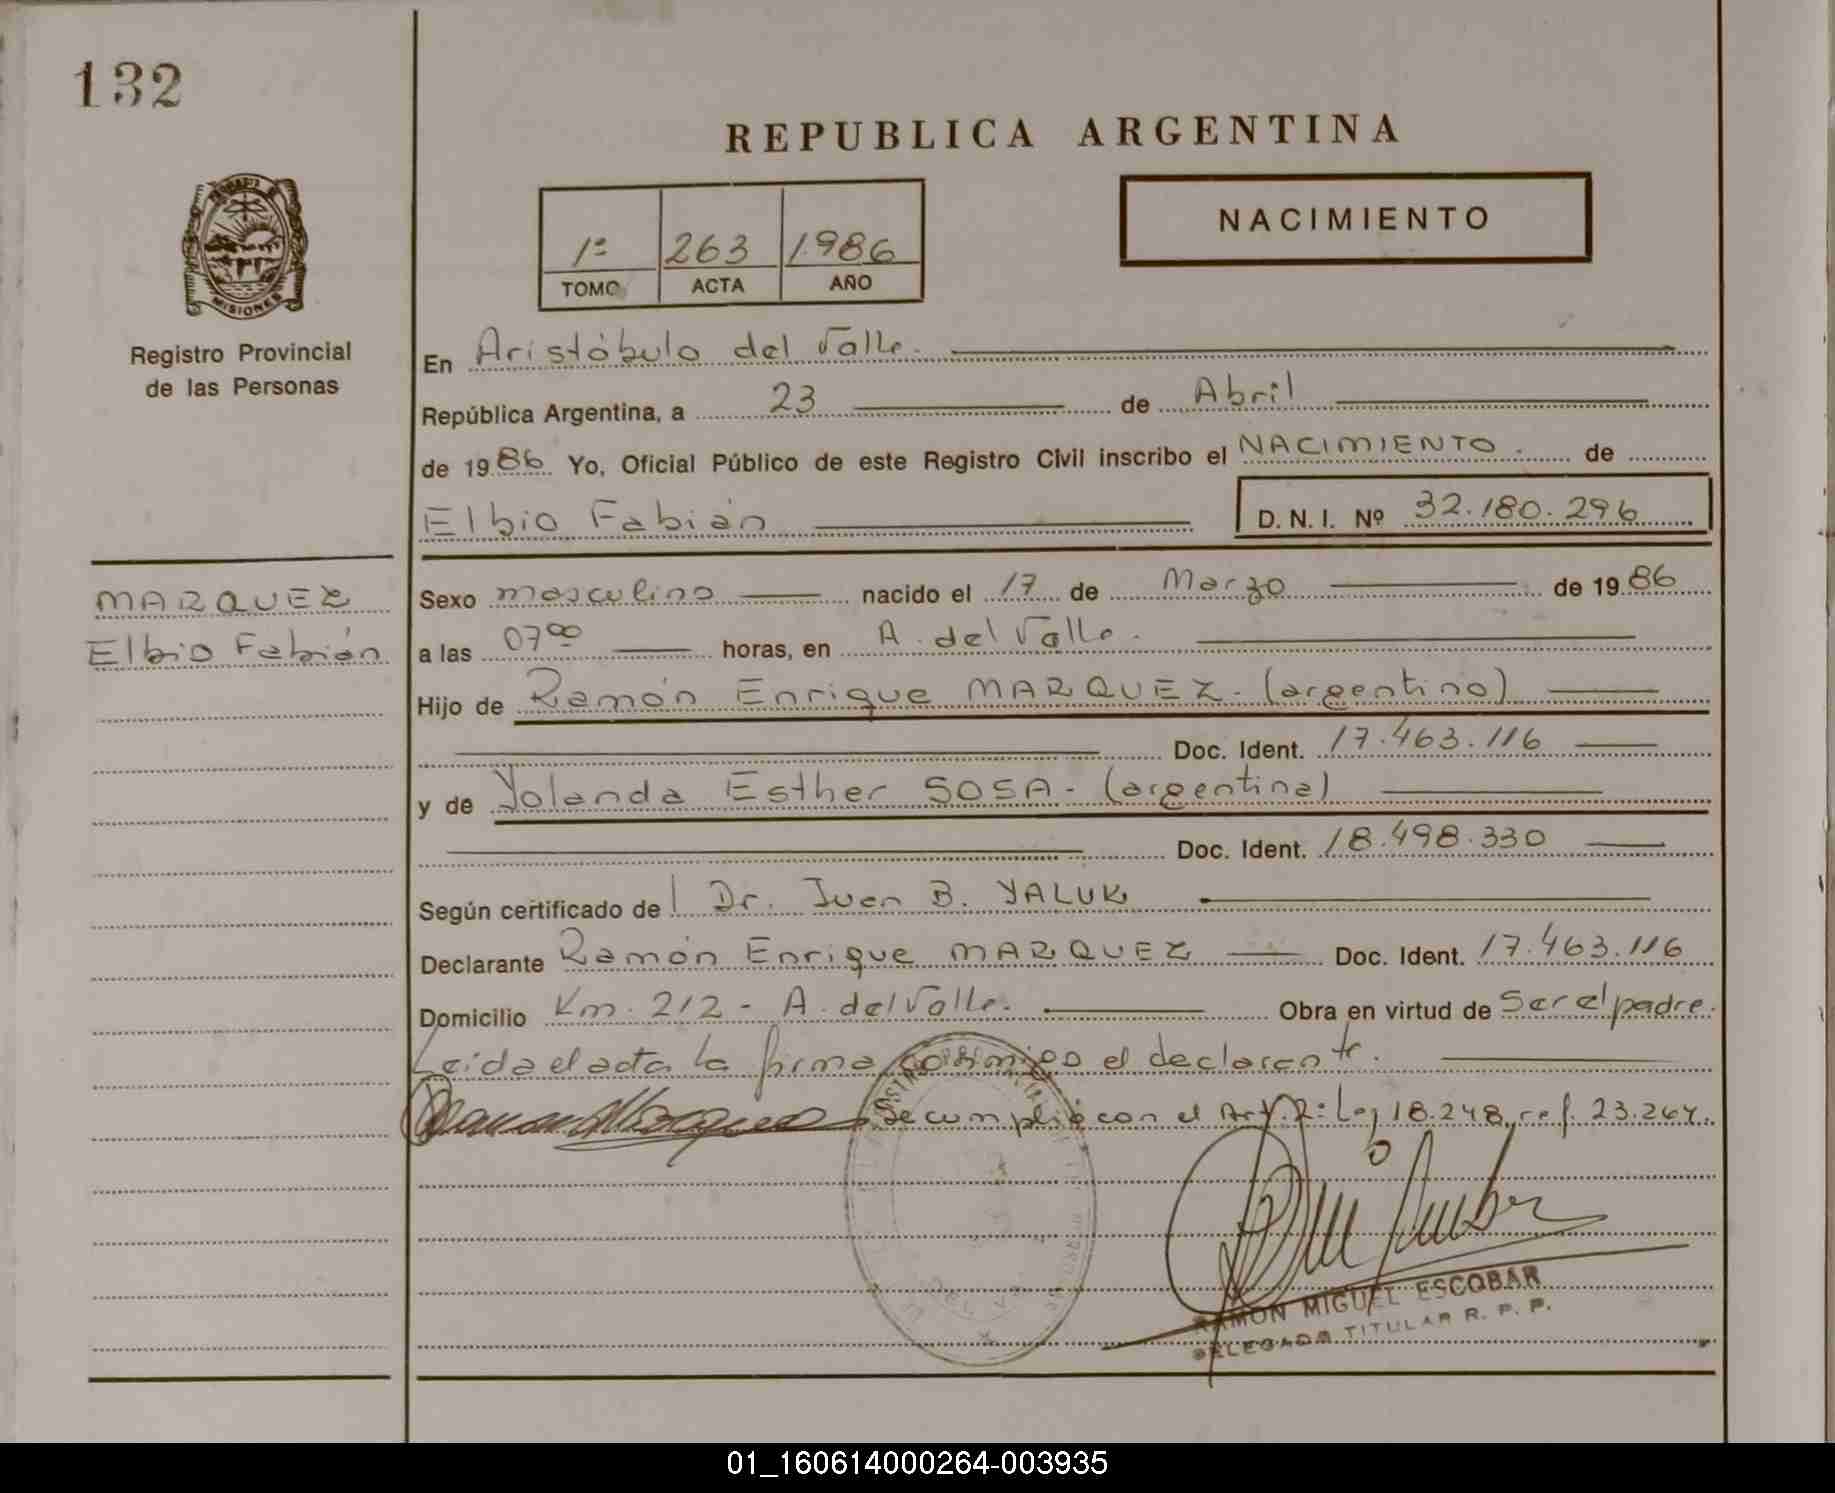 132
REPUBLICA ARGENTINA
NACIMIENTO
1º 263 1.986
TOMO ACTA AÑO
MISIONES
Registro Provincial
de las Personas
En Aristóbulo del Valle.
República Argentina, a 23 de Abril
de 1986 Yo, Oficial Público de este Registro Civil inscribo el NACIMIENTO. de
Elbio Fabián D. N. I. Nº 32.180.296
MARQUEZ
Elbio Fabián
Sexo masculino nacido el 17 de Marzo de 1986
a las 07 00 horas, en A. del Valle.
Hijo de Ramón Enrique MARQUEZ - (argentino)
Doc. Ident. 17.463.116
y de Yolanda Esther SOSA - (argentina)
Doc. Ident. 18.498.330
Según certificado del Dr. Juan B. YALUK
Declarante Ramón Enrique MARQUEZ Doc. Ident. 17.463.116
Domicilio Km. 212 - A. del Valle. Obra en virtud de Ser el padre.
Leida el acta la firma conmigo el declarante.
Se cumplió con el Art. 2º Ley 18.248, ref. 23.264.
RAMON MIGUEL ESCOBAR
DELEGADO TITULAR R. P. P.
01_160614000264-003935